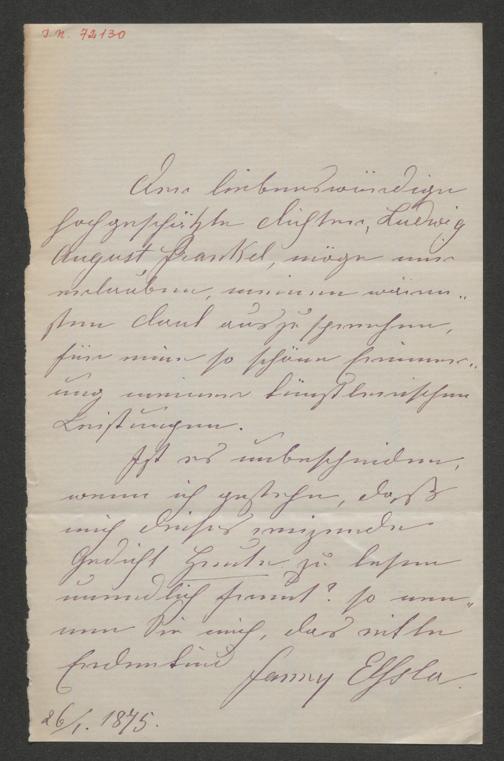 I. N. 72130
Der liebenswürdige
hochgeschätzte Dichter, Ludwig
August Frankl, möge mir
erlauben, meinen wärm-
sten Dank auszusprechen,
für eine so schöne Erinner-
ung meiner künstlerischen
Leistungen.
Ist es unbescheiden,
wenn ich gestehe, daß
mich dieses reizende
Gedicht Heute zu lesen
unendlich freut? so nen-
nen Sie mich, das eitle
Erdenkind Fanny Elssler.
26/1. 1875.